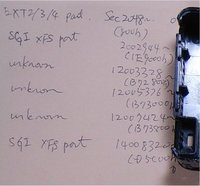 EXT2/3/4 pad. Sec 2048~
(800h)
SGI XFS port 2002944~
(1E9000h)
unknown 12003328~
(B72800h)
unknown 12005376~
(B73000h)
unknown 12007424~
(B73800h)
SGI XFS port 14008320
(D5C000h)